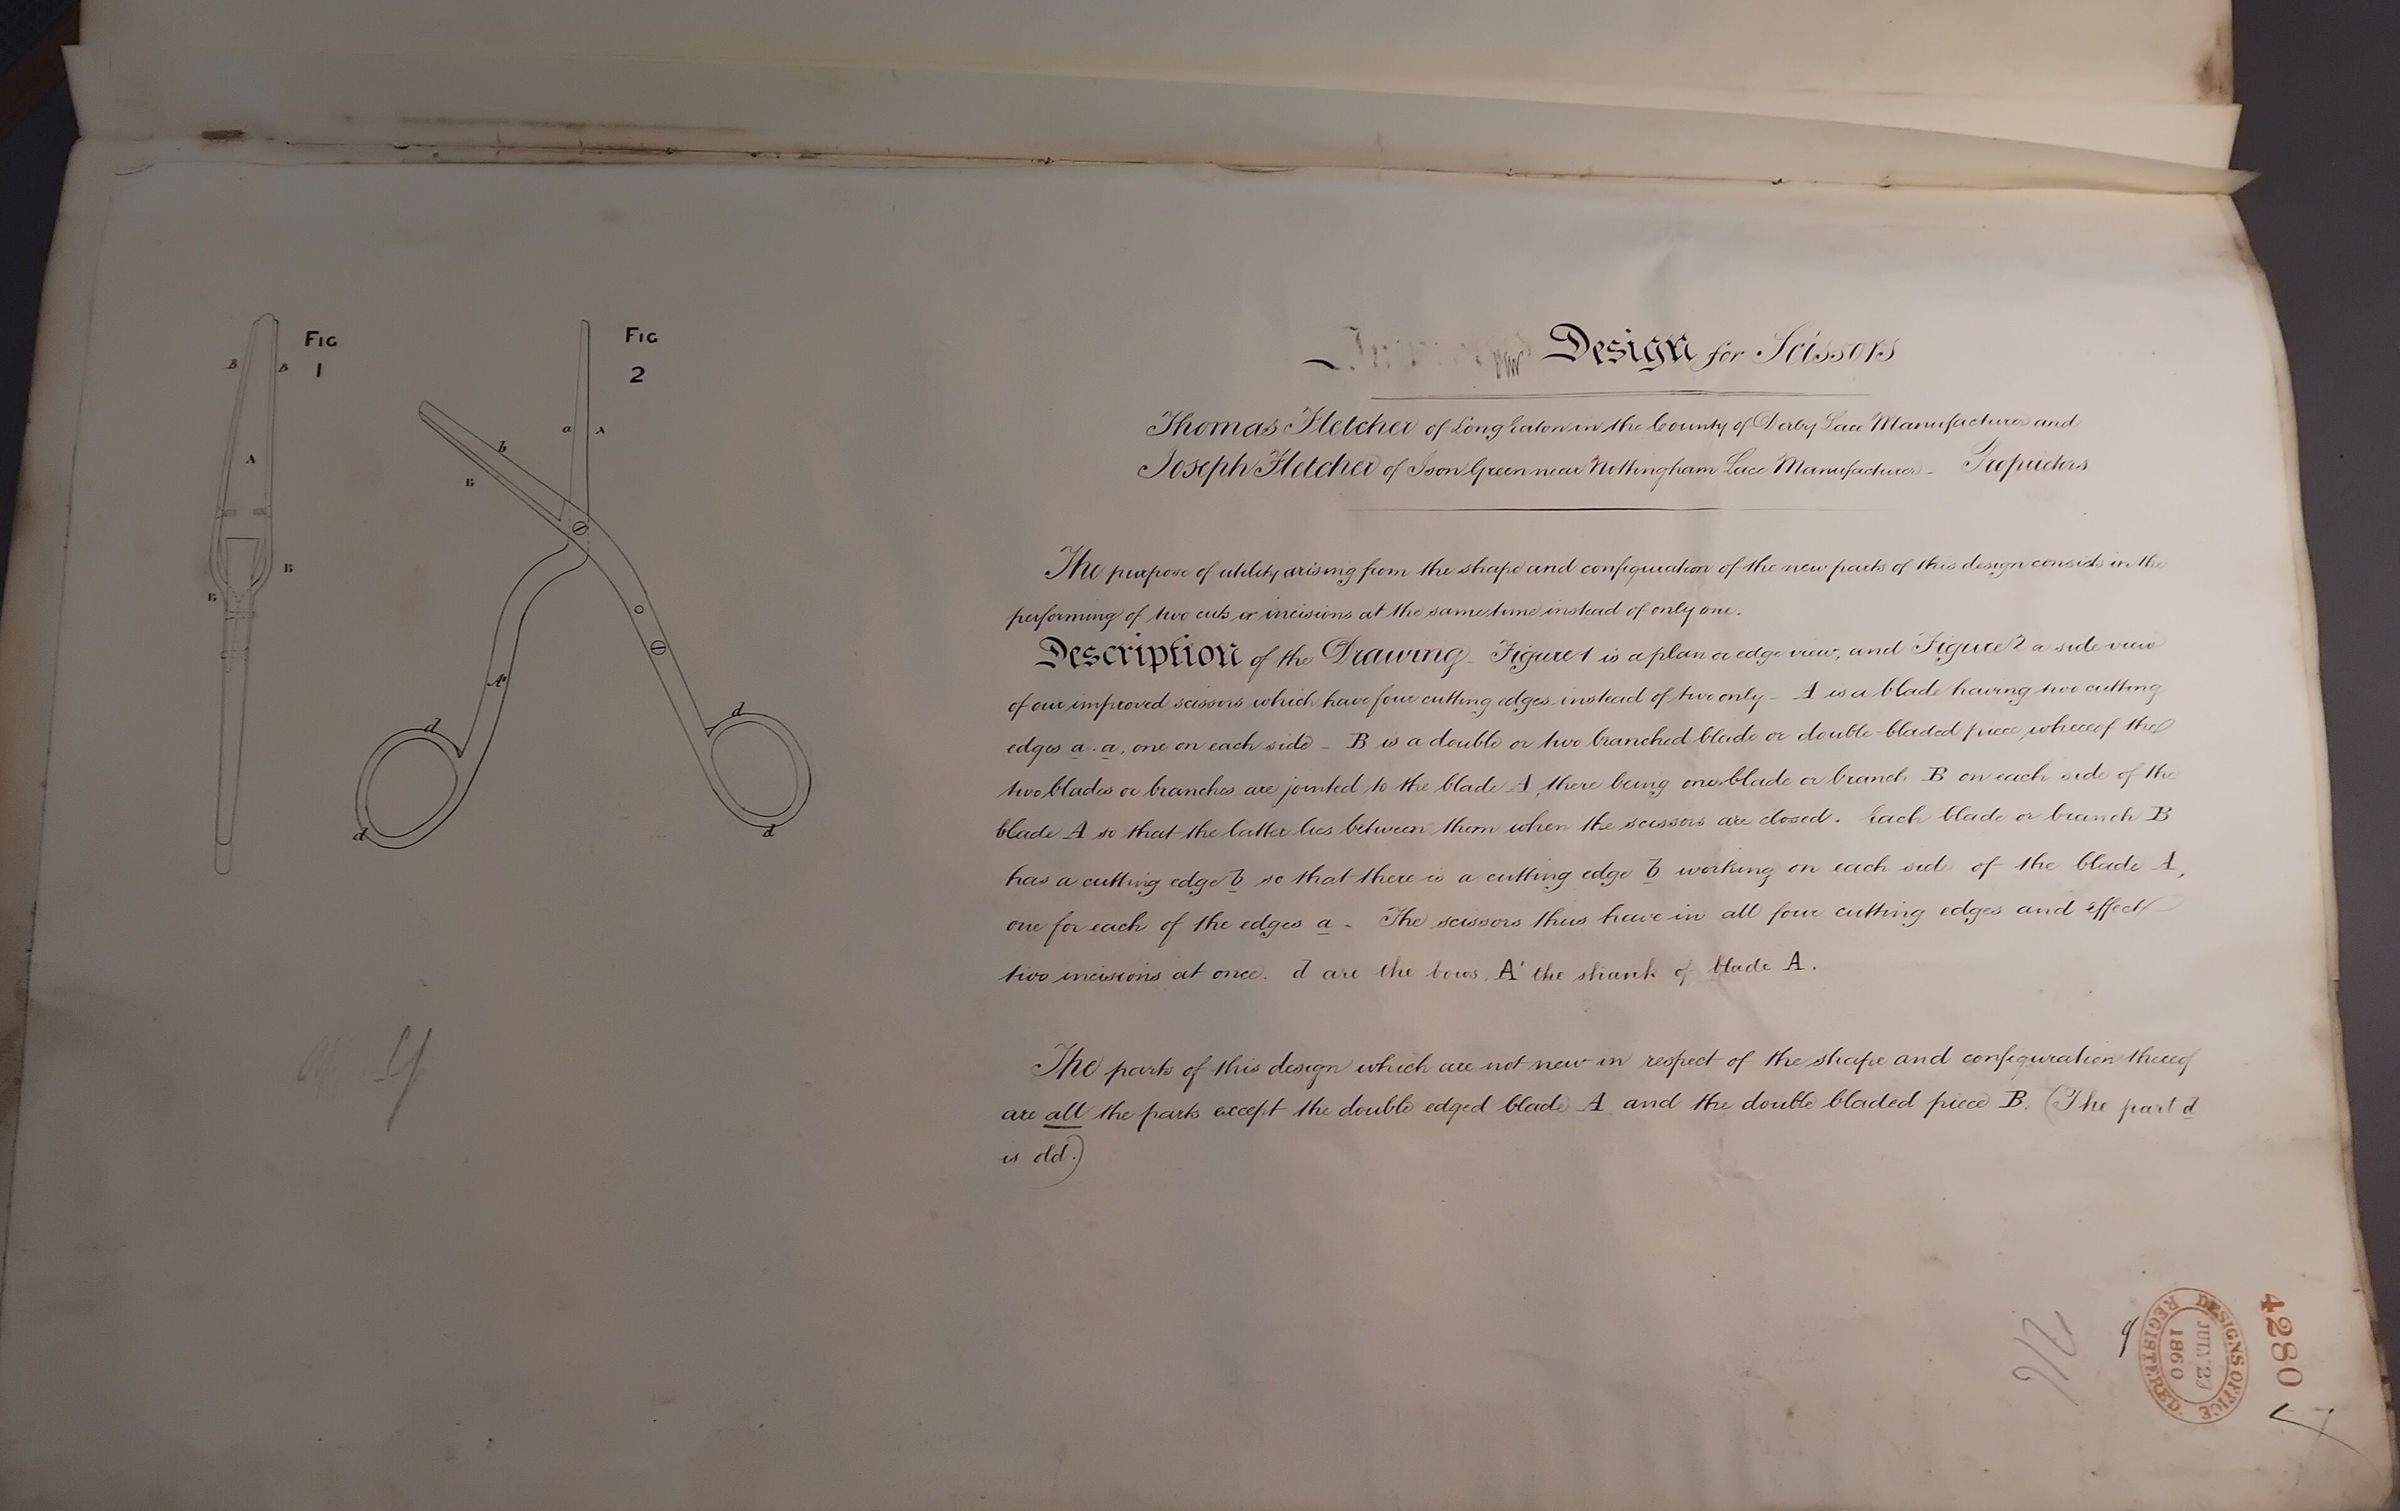 FIG
1
B
B
A
B
B
FIG
2
b
B
a
A
A'
d
d
d
d
Design for Scissors
Thomas Fletcher of Long Eaton in the County of Derby Lace Manufacturer and
Joseph Fletcher of Ison Green near Nottingham Lace Manufacturer - Proprietors
The purpose of utility arising from the shape and configuration of the new parts of this design consists in the
performing of two cuts or incisions at the same time instead of only one.
Description of the Drawing - Figure 1 is a plan or edge view, and Figure 2 a side view
of our improved scissors which have four cutting edges instead of two only - A is a blade having two cutting
edges a. a, one on each side - B is a double or two branched blade or double-bladed piece whereof the
two blades or branches are jointed to the blade A, there being one blade or branch B on each side of the
blade A so that the latter lies between them when the scissors are closed. Each blade or branch B
has a cutting edge b so that there is a cutting edge b working on each side of the blade A,
one for each of the edges a - The scissors thus have in all four cutting edges and effect
two incisions at once. d are the bows, A' the shank of blade A.
The parts of this design which are not new in respect of the shape and configuration thereof
are all the parts except the double edged blade A and the double bladed piece B. (The part d
is old.)
4280
DESIGNS OFFICE
REGISTERED
1860